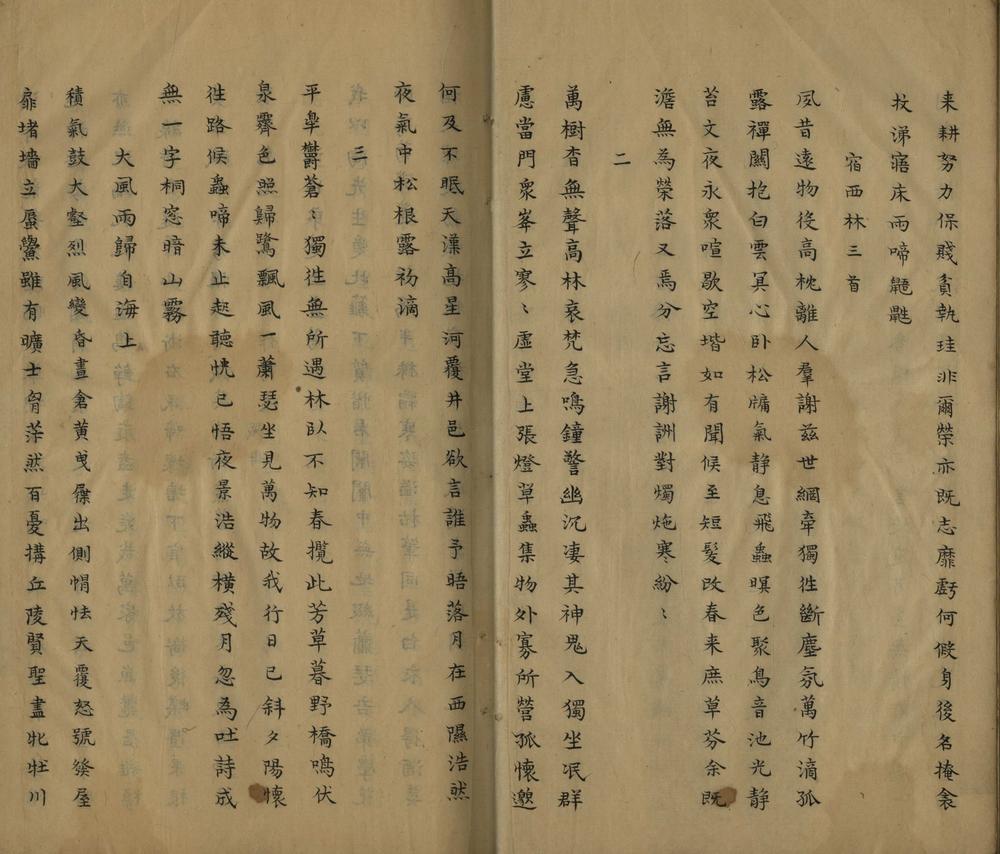 来耕努力保賤貧執珪非爾榮亦既志靡虧何假身後名掩衾
杖涕寤床雨啼鼯鼪
宿西林三首
夙昔遠物役高枕離人羣謝兹世網牽獨徃斷塵氛萬竹滴孤
露禪關抱白雲冥心卧松牖氣静息飛蟲暝色聚鳥音池光静
苔文夜永衆喧歇空堦如有聞候至短髮改春来庶草芬余既
澹無為榮落又焉分忘言謝詶對燭炧寒紛〻
二
萬樹杳無聲高林哀梵急鳴鐘警幽沉凄其神鬼入獨坐冺群
慮當門衆峯立寥〻虛堂上張燈草蟲集物外寡所營孤懷邈
何及不眠天漢高星河覆井邑欲言誰予晤落月在西隰浩然
夜氣中松根露初滴
三
平臯欝蒼〻獨徃無所遇林臥不知春攬此芳草暮野橋鳴伏
泉霽色照歸鷺飄風一蕭瑟坐見萬物故我行日已斜夕陽懷
徃路候蟲啼未止起聽恍已悟夜景浩縱横殘月忽為吐詩成
無一字桐窓暗山霧
大風雨歸自海上
積氣鼓大壑烈風變昏晝倉黄曳屧出側帽怯天覆怒號發屋
扉堵墻立蜃鱟雖有曠士胷茫然百憂搆丘陵賢聖盡牝牡川